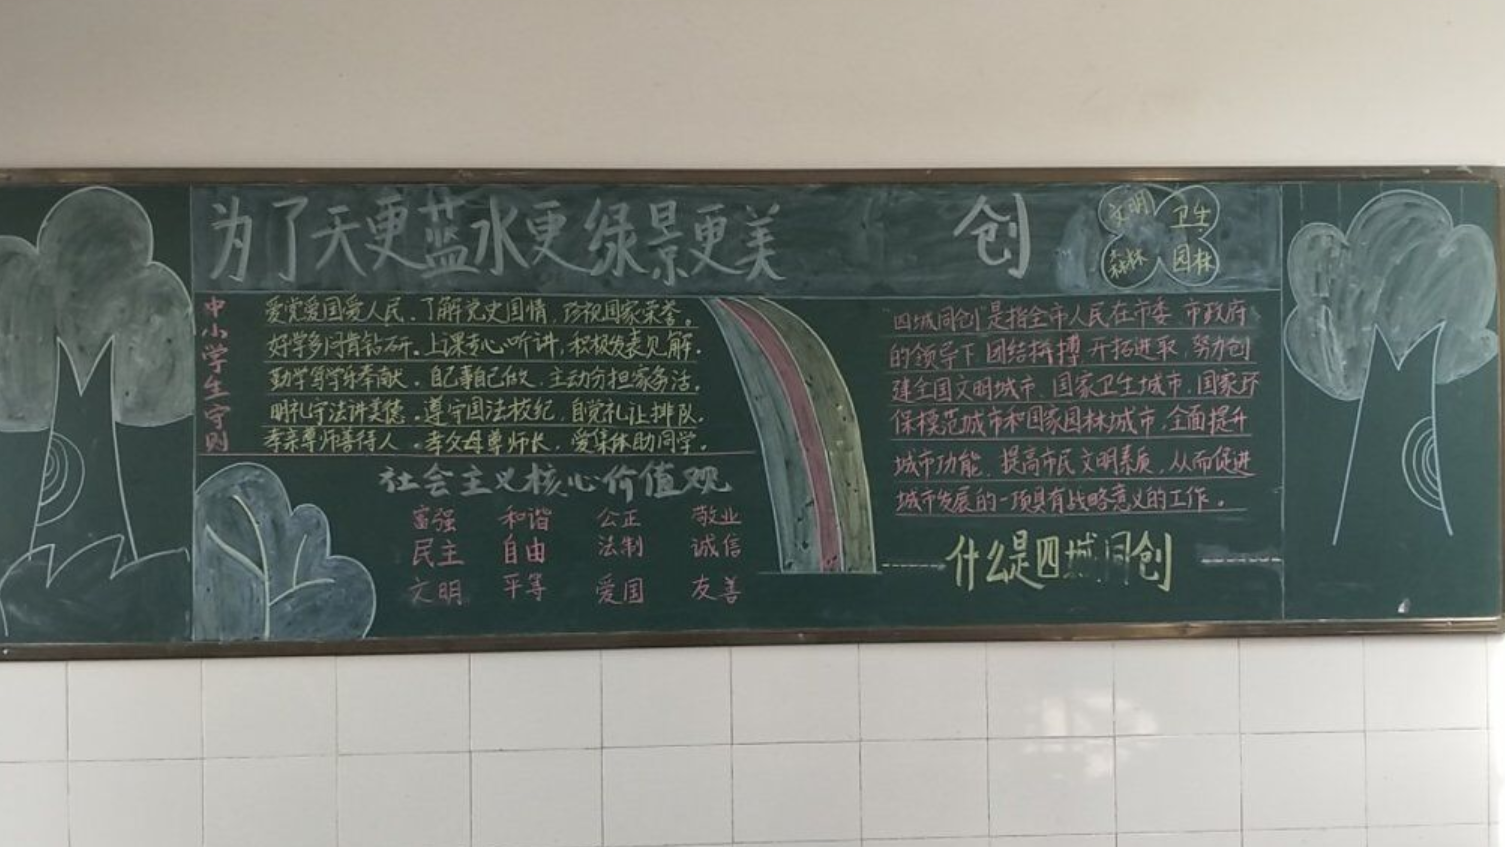 为了天更蓝水更绿景更美
创
文明 卫生
森林 园林
中小学生守则
爱党爱国爱人民。了解党史国情,珍视国家荣誉。
好学多问肯钻研。上课专心听讲,积极发表见解。
勤学笃学乐奉献。自己事自己做,主动分担家务活。
明礼守法讲美德。遵守国法校纪,自觉礼让排队。
孝亲尊师善待人。孝父母尊师长,爱集体助同学。
社会主义核心价值观
富强 和谐 公正 敬业
民主 自由 法制 诚信
文明 平等 爱国 友善
四城同创是指全市人民在市委 市政府
的领导下 团结拼搏 开拓进取,努力创
建全国文明城市、国家卫生城市、国家环
保模范城市和国家园林城市,全面提升
城市功能,提高市民文明素质,从而促进
城市发展的一项具有战略意义的工作。
什么是四城同创